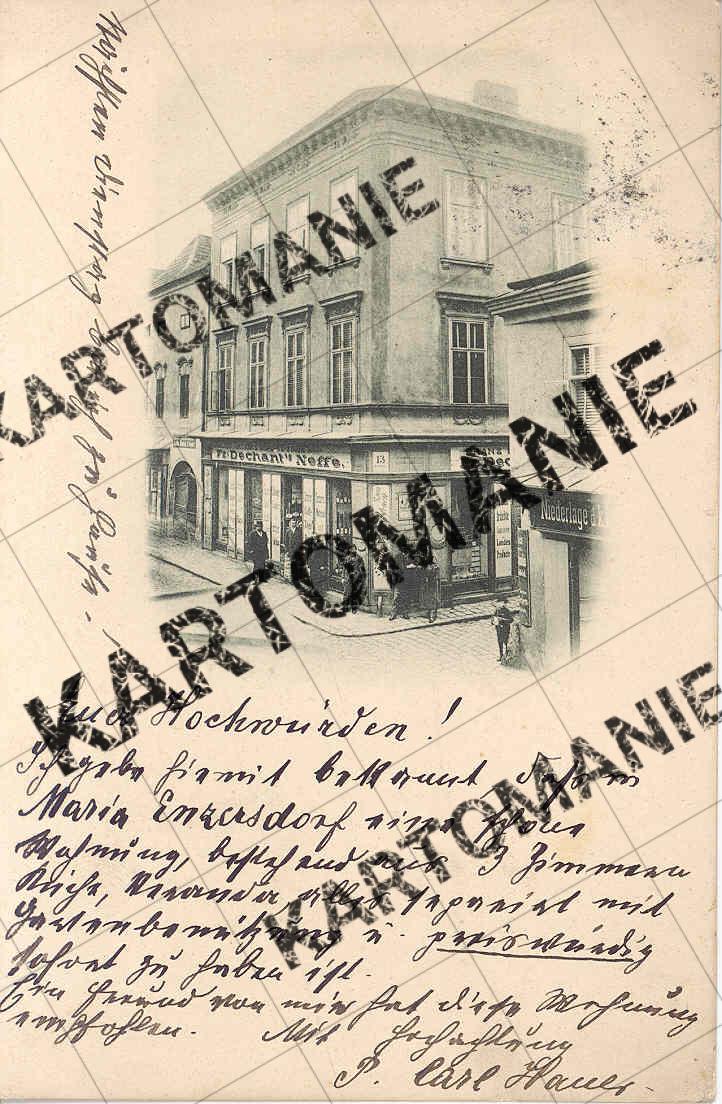 Fr. Dechant's Neffe.
13
Niederlage d. K
Euer Hochwürden!
Ich gebe hiemit bekannt dass in
Maria Enzersdorf eine schöne
Wohnung, bestehend aus 3 Zimmern
Küche, Veranda, alles separirt mit
Gartenbenützung u. preiswürdig
sofort zu haben ist.
Ein Freund von mir hat diese Wohnung
empfohlen. Mit Hochachtung
P. Carl Hauer
KARTOMANIE
KARTOMANIE
KARTOMANIE
KARTOMANIE
KARTOMANIE